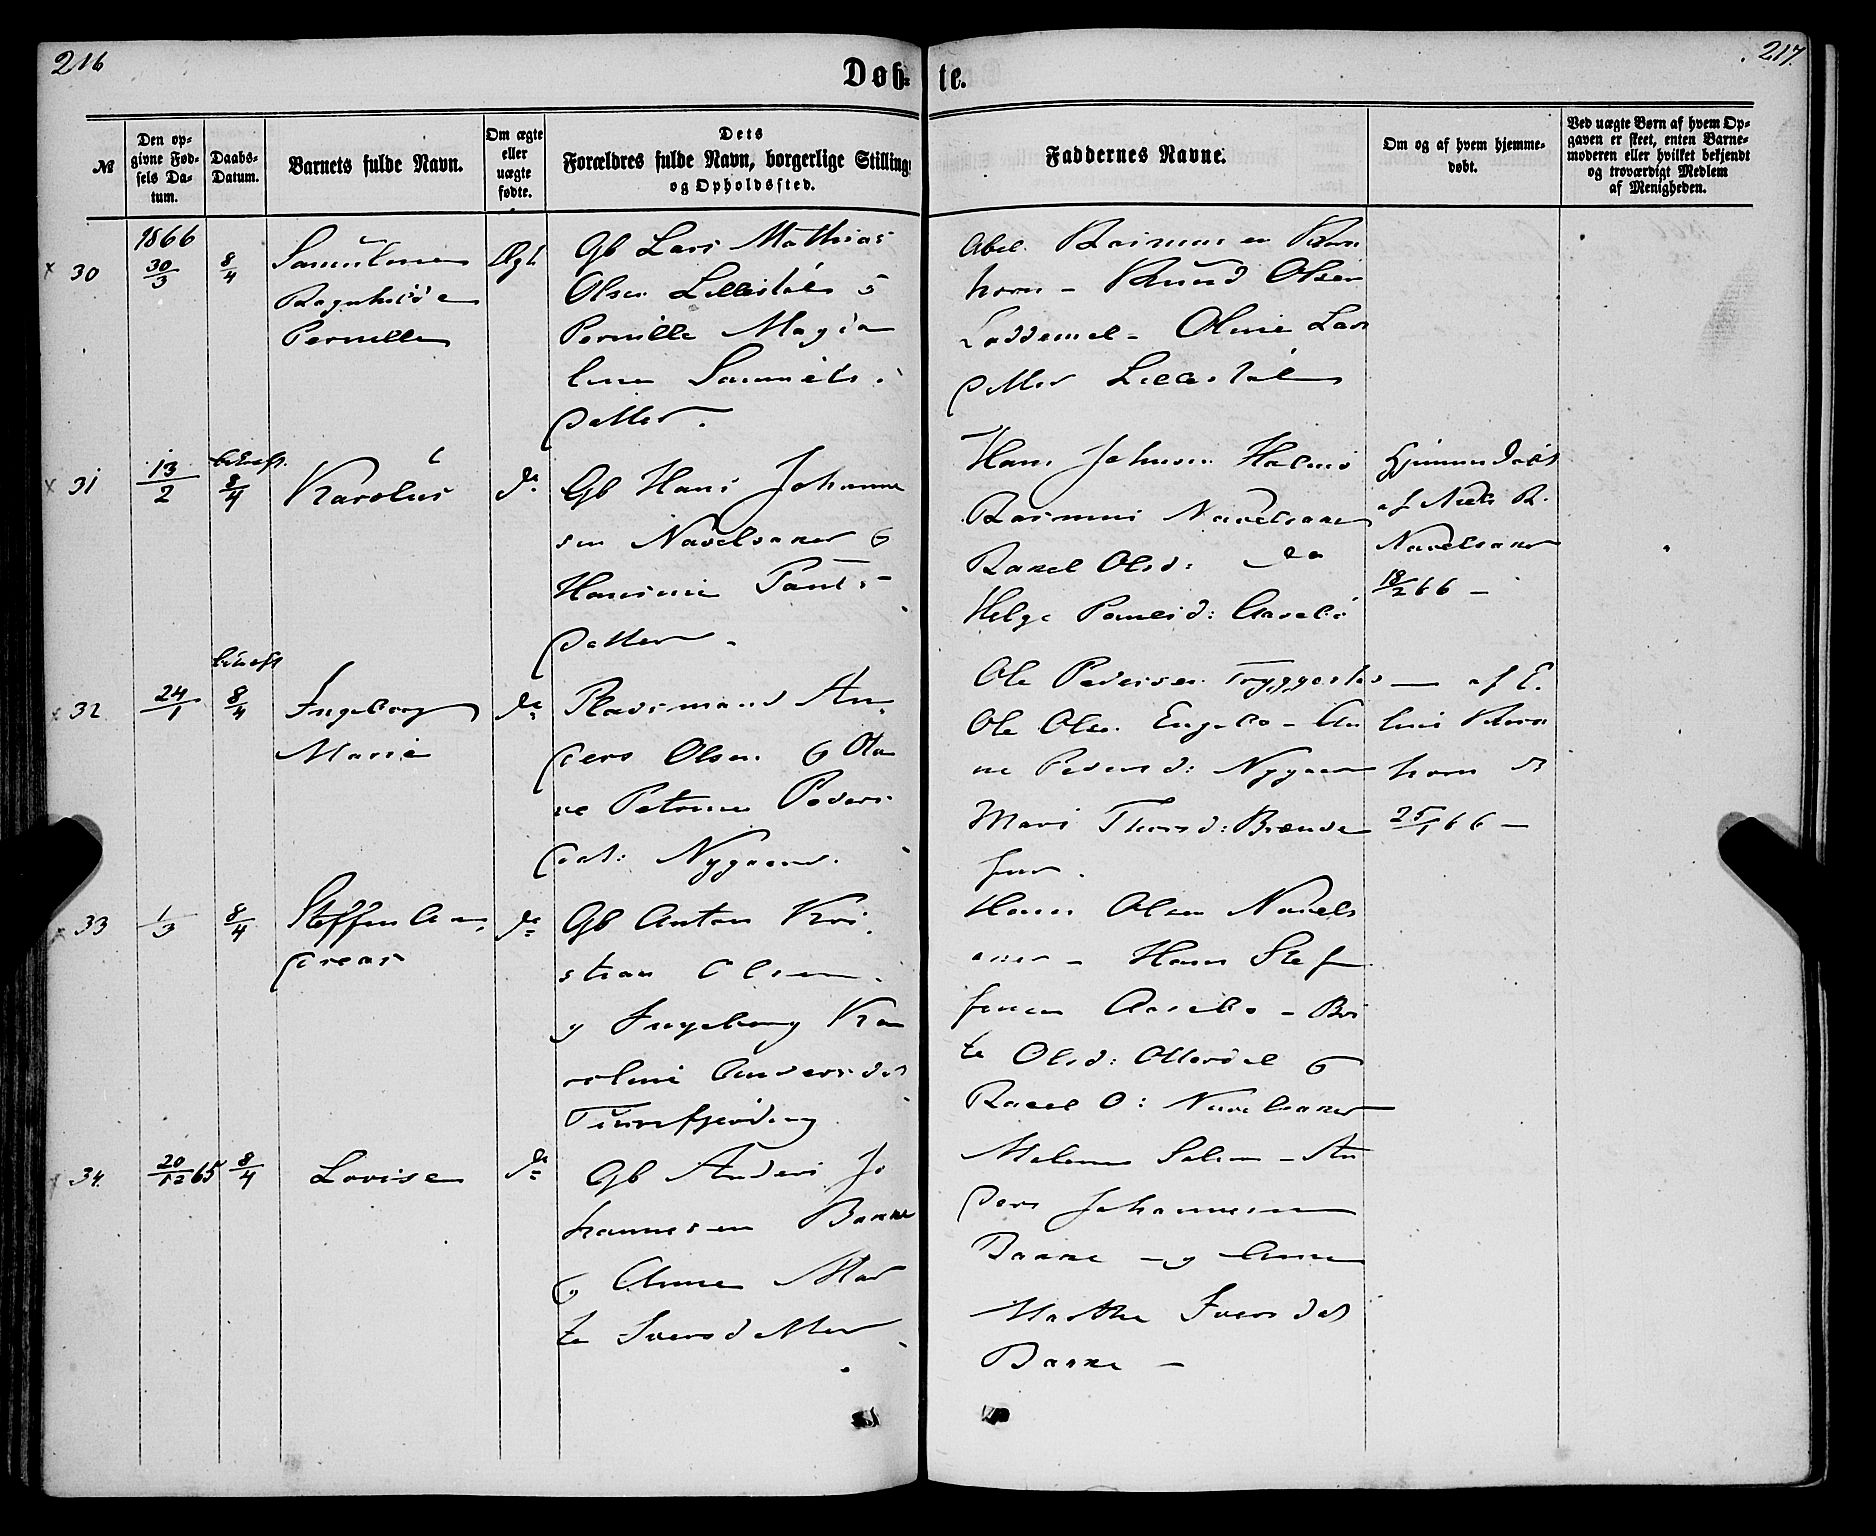 216
Døb-
te.
217.
№
Den op-
givne Fød-
sels Da-
tum.
Daabs-
Datum.
Barnets fulde Navn.
Om ægte
eller
uægte
fødte.
Dets
Forældres fulde Navn, borgerlige Stilling
og Opholdssted.
Faddernes Navne.
Om og af hvem hjemme-
døbt.
Ved uægte Børn af hvem Op-
gaven er skeet, enten Barne-
moderen eller hvilket bekjendt
og troværdigt Medlem
af Menigheden.
1866
x 30
30/3
8/4
Ragnhilde
Pernille
Ægte
Gb Lars Mathias
Olsen
Pernille Magda
lena Samuels
datter.
Abel Rasmus
Knud Olsen
Oline Lars
datter
x 31
13/2
bekræft.
8/4
Karolus
do
Gb Hans Johanne
sen Navelsaker og
Hansine Pauls
datter -
Hans Johnsen
Rasmus Navelsaker
Rakel Olsd: do
Helge Paulsd: Aasebø
Hjemmedøbt
af Niels R.
Navelsaker
18/2 66 -
x 32
24/1
bekræft
8/4
Ingeborg
Marie
do
Pladsmand An
ders Olsen og Ola
ve Petrine Peders
dat: Nygaard.
Ole Pedersen Tryggestad
Ole Olsen Engebø - An
ne Pedersd: Nygaard
Mari Thorsd: Brænde
- af E.
horn d
25/1 66 -
x 33
1/3
8/4
Steffen An
dreas
do
Gb Anton Kri
stian Olsen
og Ingeborg Ka
roline Andersdat
Hans Olsen Navels
aker - Hans Stef
fensen Aasebø - Bri
te Olsd: Otterdal og
Rakel O: Navelsaker
x 34.
20/12 65
8/4
Lovise
do
Gb Anders Jo
hannesen Bakke
og Anne Mar
te Iversdatter
An
ders Johannesen
Bakke - og Anne
Marthe Iversdat
Bakke -